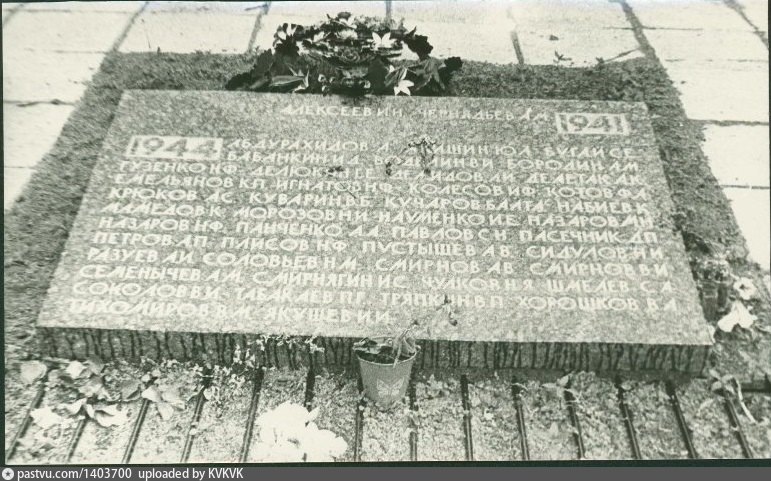 АЛЕКСЕЕВ И.И. ЧЕРНЯДЬЕВ А.И. 1941
1944 АБДУРАХИДОВ А.
БАБАНКИН И.Д. БОРОДИН А.И.
ТУЗЕНКО Н.Ф. ДЕМИДОВ А.И.
ЕМЕЛЬЯНОВ К.П. ИГНАТОВ Н.Ф. КОЛЕСОВ И.Ф. КОТОВ Ф.А.
КРЮКОВ А.С. КУВАРИН В.Е. КУЧАРОВ БАЛТА НАБИЕВ К.
МАМЕДОВ К. МОРОЗОВ Н.И. НАУМЕНКО И.Е. НАЗАРОВ М.И.
НАЗАРОВ Н.Ф. ПАНЧЕНКО А.А. ПАВЛОВ С.Н. ПАСЕЧНИК Д.П.
ПЕТРОВ А.П. ПЛИСОВ Н.Ф. ПУСТЫШЕВ А.В. СИДУЛОВ Н.И.
РАЗУЕВ А.И. СОЛОВЬЕВ Н.М. СМИРНОВ А.В. СМИРНОВ В.И.
СЕЛЕНЫЧЕВ А.М. СМИРНЯГИН И.С. ЧУЛКОВ Н.Я. ШМЕЛЕВ С.А.
СОКОЛОВ В.И. ТАБАКАЕВ П.Г. ТРЯПКИН В.П. ХОРОШКОВ В.А.
ТИХОМИРОВ В.М. ЯКУШЕВ И.И.
pastvu.com/1403700 uploaded by KVKVK